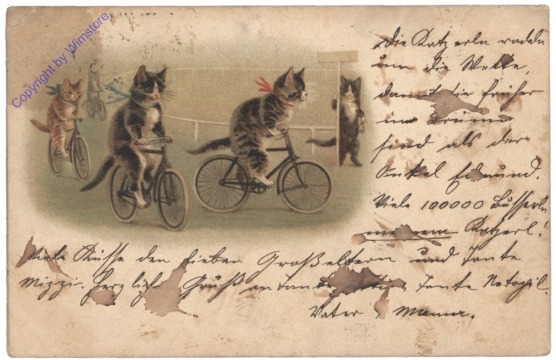 Copyright by Wimstore
Die Katzerln radeln
um die Wette,
damit sie früher
in
sind als der
Onkel Edmund.
Viele 100000 Busserln
meinem Katzerl!
Viele Küsse den lieben Großeltern und Tante
Mizzi. Herzlich Gruß an Tante Tante
Vater Mama.